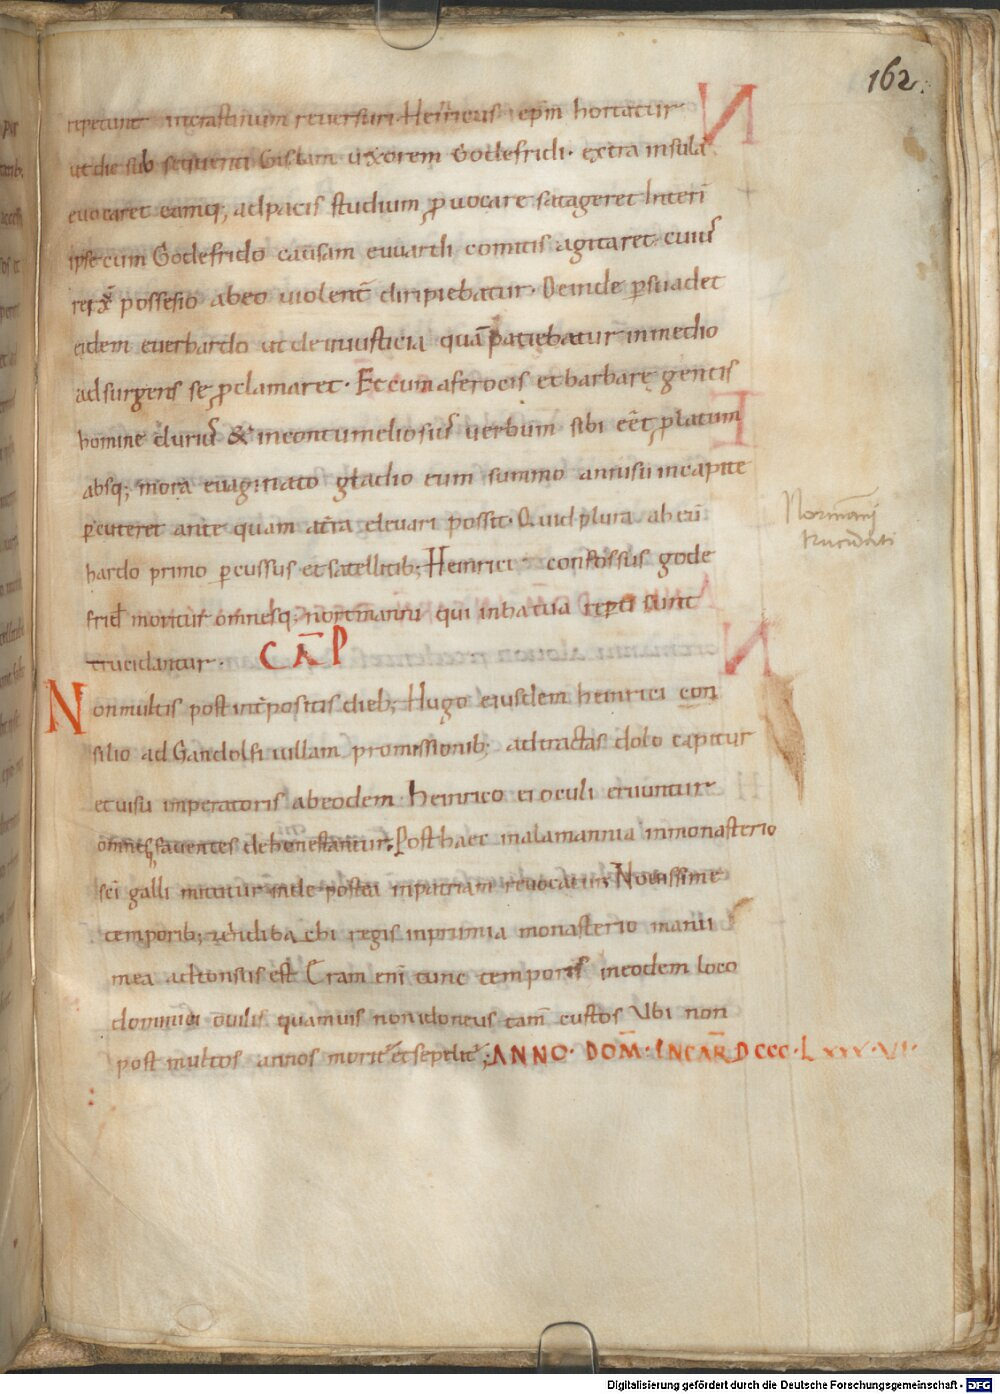 162.
repetunt incrastinum reuersuri. Heinricus epm̄ hortatur
ut die sub sequenti Gislam uxorem Godefridi· extra insulā
euocaret eamq; ad pacis studium ꝓuocare satageret Interī
ipse cum Godefrido causam euuardi comitis agitaret· cuiuſ
possesio abeo uiolent̄ diripiebatur· Deinde p̄suadet
eidem euerbardo ut de iniusticia quā patiebatur inmedio
adsurgens se ꝓclamaret· Et cum aferocis et barbarę gentis
homine duriuſ & incontumeliosiuſ uerbum sibi eēt ꝓlatum
absq; mora euaginato gladio eum summo annisu incapite
p̄cuteret ante quam at̄ra eleuari possit· Quid plura ab eū
hardo primo p̄cussus et satellitib; Heinrici confossus gode
frid moritur omnesq; nortmanni qui inbatua rep̄ti sunt
trucidantur·
Normanni
trucidati
CĀP
Non multis post int̄positis dieb; Hugo eiusdem heinrici con
silio ad Gandolfi uillam promissionib; adtractas dolo capitur
et uisu imperatoris abeodem heinrico ei oculi eruuntur
omnesq fauentes dehonestantur. Post haec inalamannia inmonasterio
sc̄i galli mittitur inde postea inpatriam reuocatur; Nouissime
temporib; regis inprumia monasterio manu
mea adtonsus est Eram eni tunc temporis ineodem loco
dominici ouilis quamuis non idoneus tam̄ custos Ubi non
post multos annos moritͬ et sepelitͬ; ANNO· DOM̄· INCAR̄ DCCC·LXXX·VI·